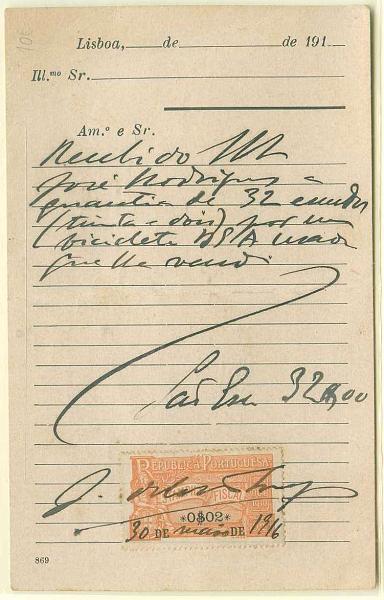 Lisboa, de de 191
Ill.mo Sr.
Am.º e Sr.
Recebi do Ill
José Rodrigues a
quantia de 32 escudos
(trinta e dois) por uma
bicicleta BSA usada
que lhe vendi.
São Esc 32$00
REPUBLICA PORTUGUESA
FISCAL
*0$02*
30 DE maio DE 1916
869